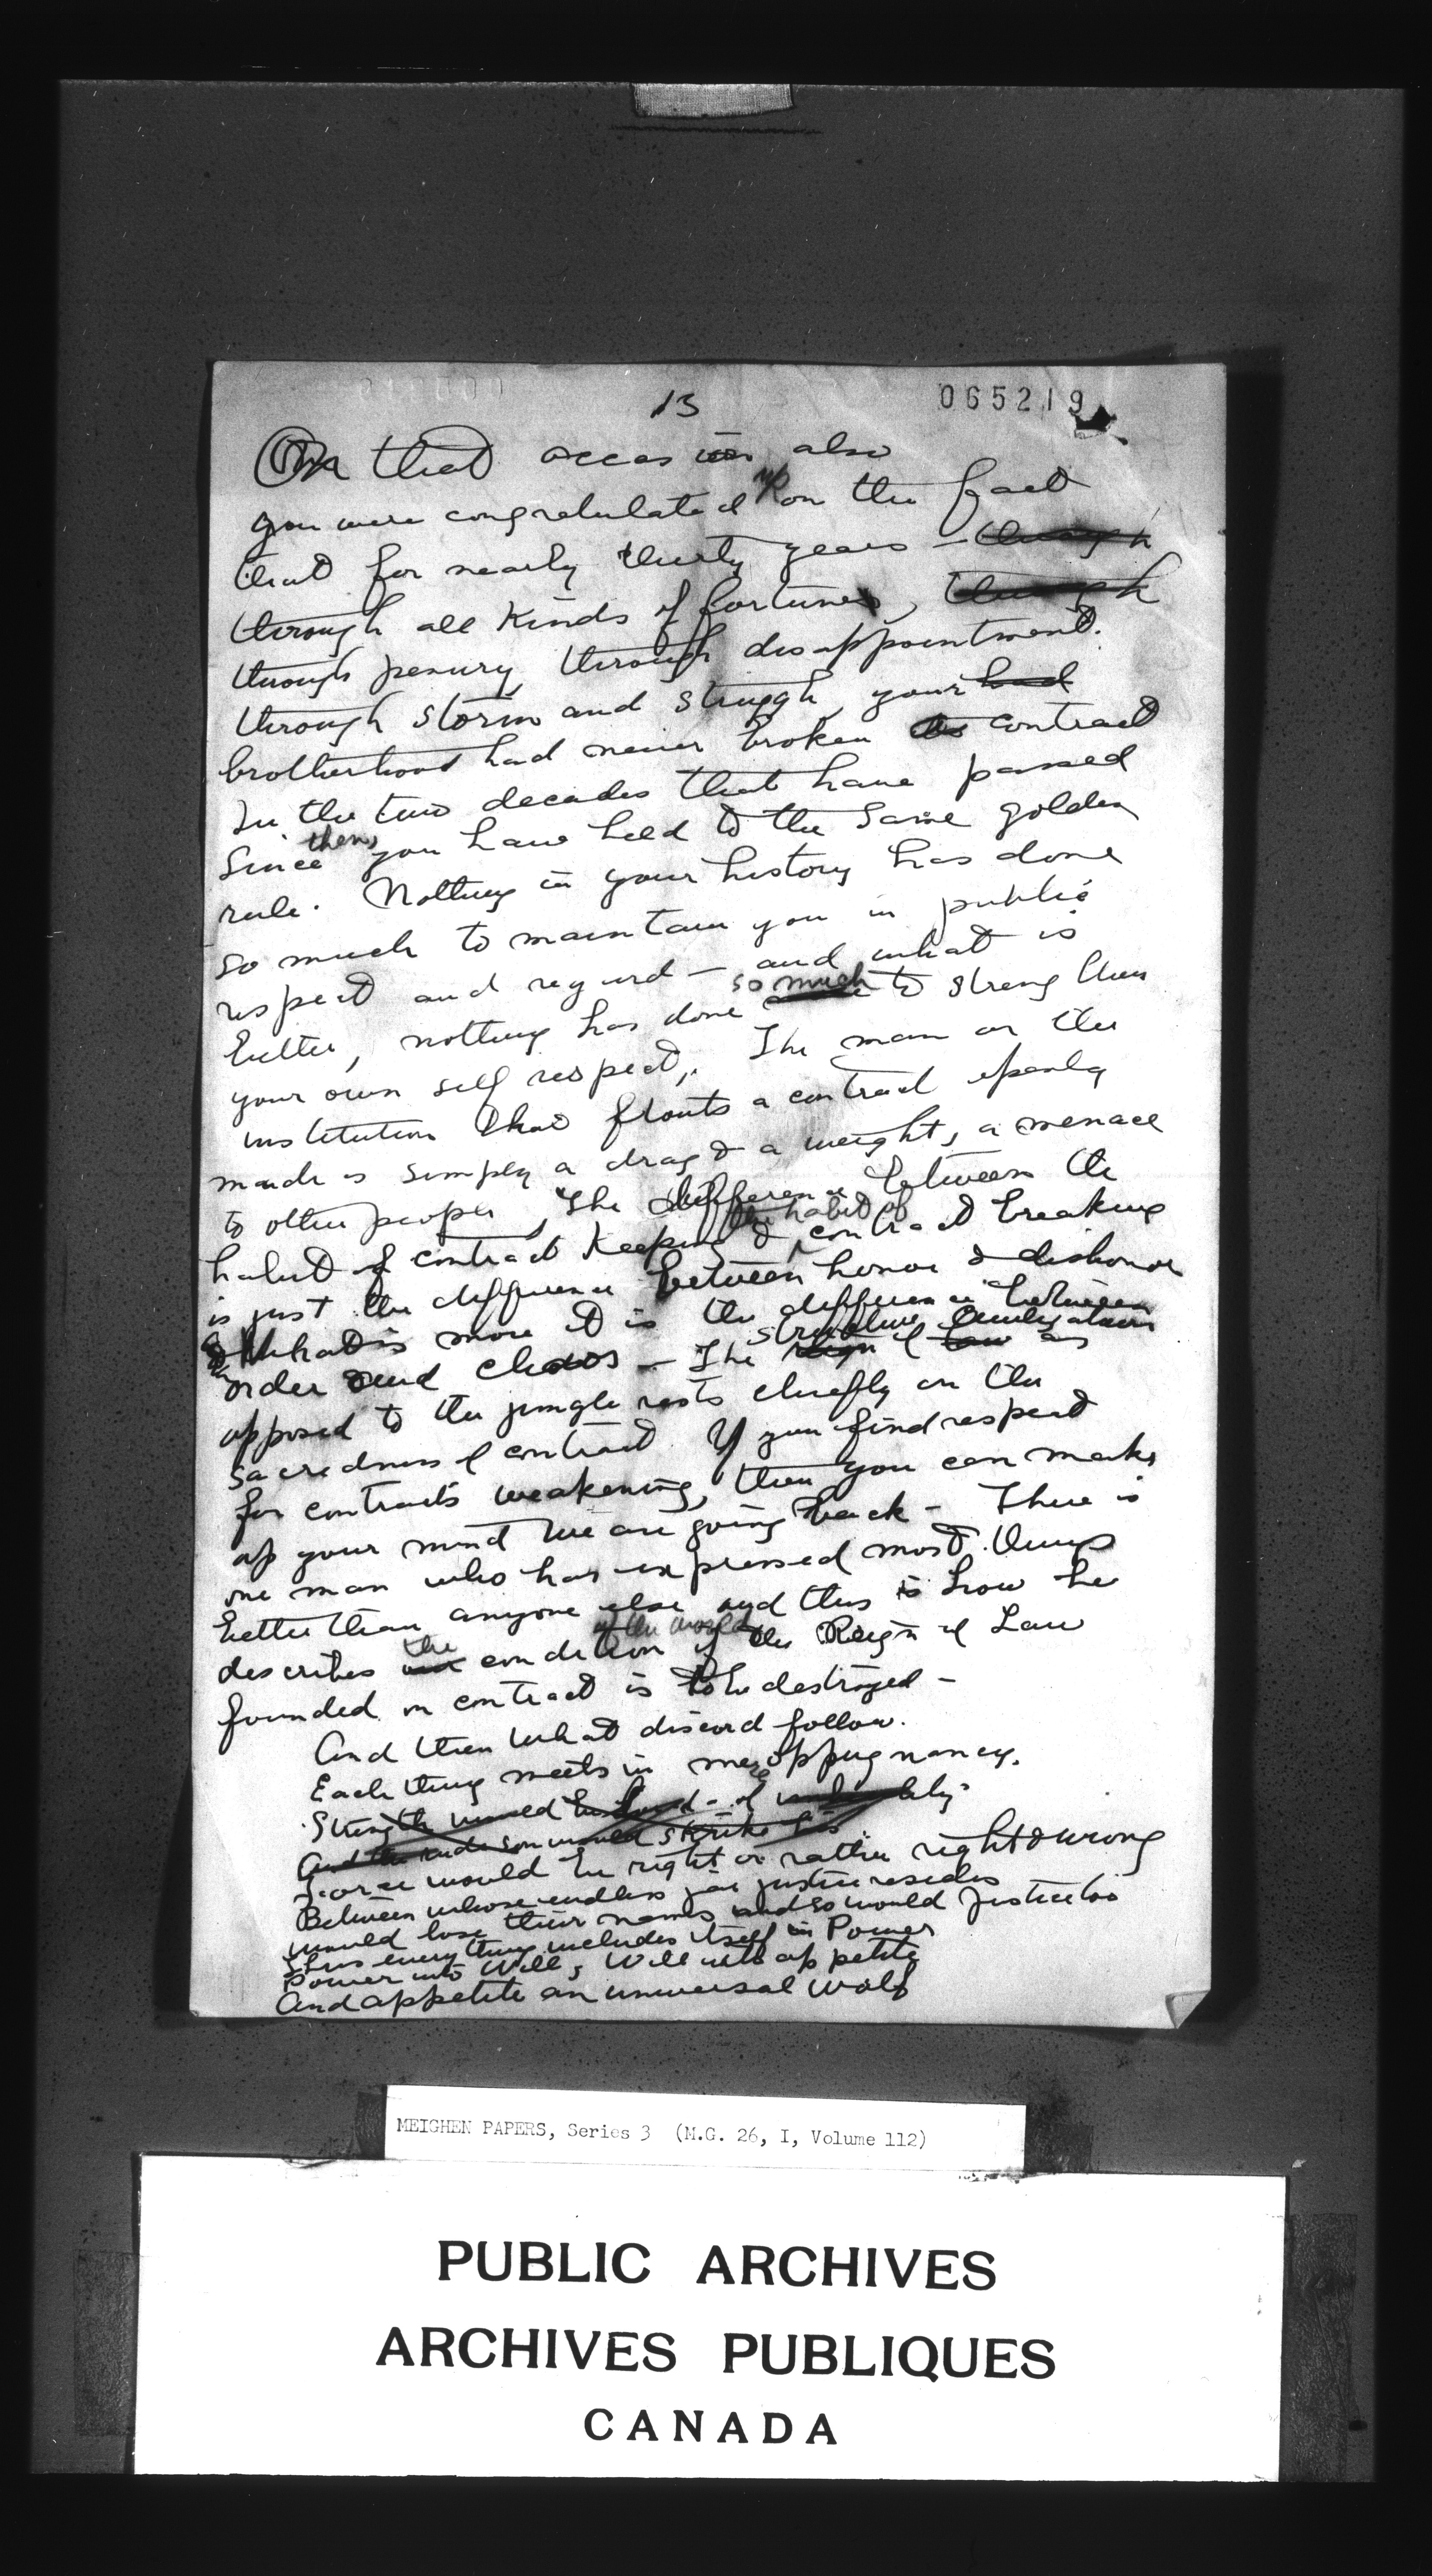 13
065219
On that occasion also
you were congratulated upon the fact
that for nearly thirty years – through
through all kinds of fortunes, through
through penury, through disappointment.
through storm and struggle, your had
brotherhood had never broken contract
In the two decades that have passed
since then, you have held to the same golden
rule. Nothing in your history has done
so much to maintain you in public
respect and regard – and what is
better, nothing has done so much to strengthen
your own self respect. The man or the
institution that flouts a contract openly
made is simply a drag & a weight, a menace
to other people. The difference between the
habit of contract keeping & the habit of contract breaking
is just the difference between honor & dishonor
& What is more it is the difference between
order and chaos – The structure of civilization as
opposed to the jungle rests chiefly on the
sacredness of contract. If you find respect
for contracts weakening, then you can make
up your mind we are going back – There is
one man who has expressed most things
better than anyone else and this is how he
describes the condition of the world if the Reign of Law
founded on contract is to be destroyed –
And then what discord follow.
Each thing meets in mere oppugnancy.
Strength would be lord of imbecility
And the rude son would strike his
Force would be right or rather right & wrong
Between whose endless jar justice resides
would lose their names and so would Justice too
Thus everything includes itself in Power
Power into Will, Will into appetite
And appetite an universal wolf
MEIGHEN PAPERS, Series 3 (M.G. 26, I, Volume 112)
PUBLIC ARCHIVES
ARCHIVES PUBLIQUES
CANADA